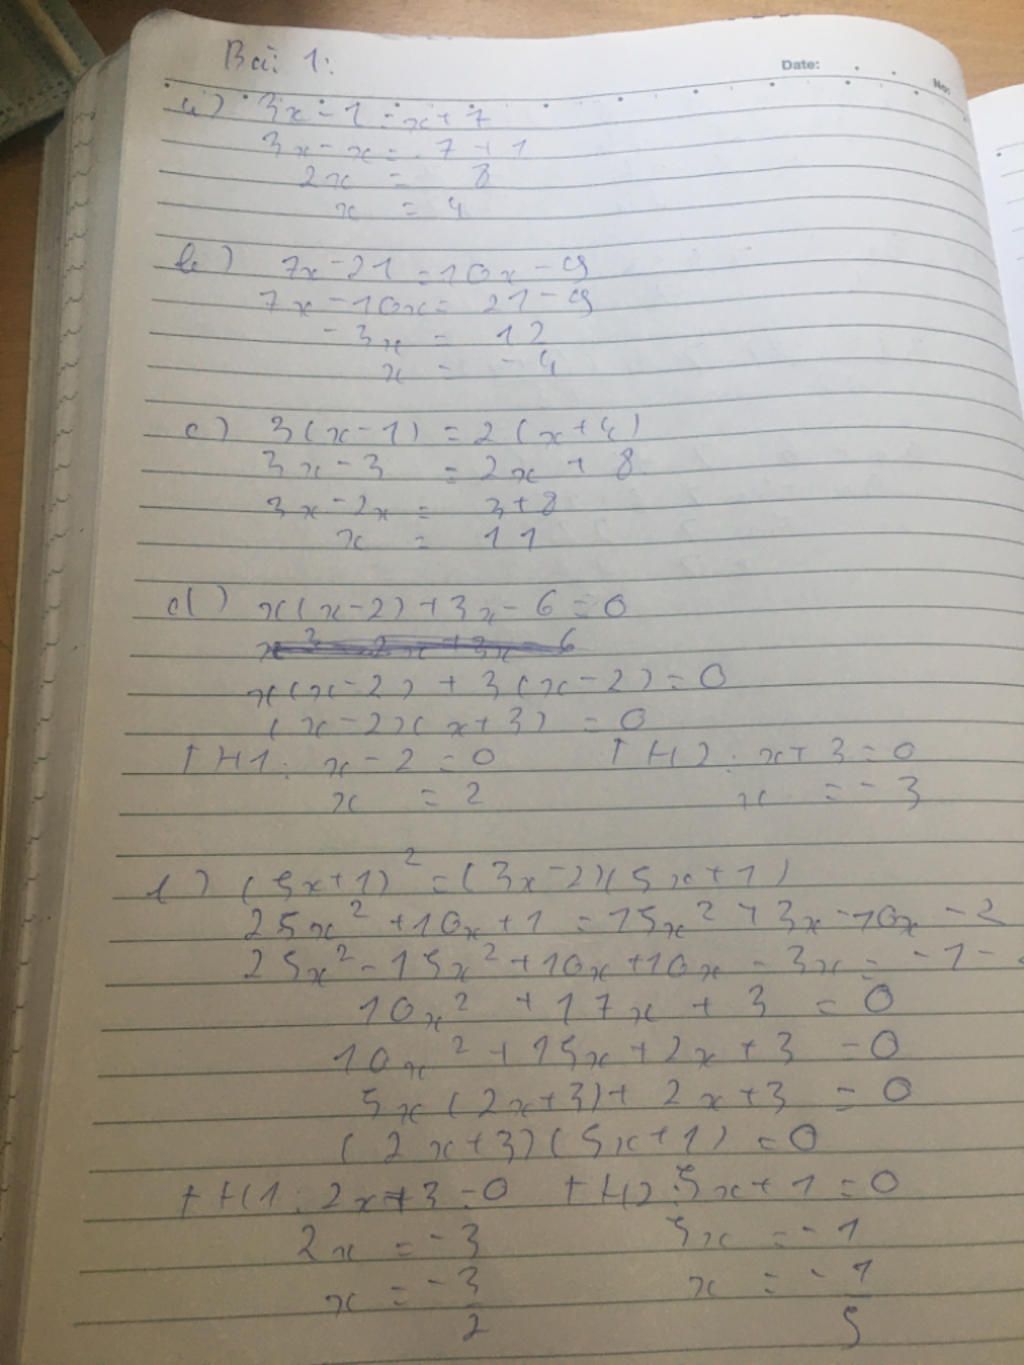 Bài 1:
Date:
No:
a) 3x - 1 = x + 7
3x - x = 7 + 1
2x = 8
x = 4
b) 7x - 21 = 10x - 9
7x - 10x = 21 - 9
- 3x = 12
x = - 4
c) 3(x - 1) = 2(x + 4)
3x - 3 = 2x + 8
3x - 2x = 3 + 8
x = 11
d) x(x - 2) + 3x - 6 = 0
x(x - 2) + 3(x - 2) = 0
(x - 2)(x + 3) = 0
TH1: x - 2 = 0 TH2: x + 3 = 0
x = 2 x = - 3
f) (5x + 1)² = (3x - 2)(5x + 1)
25x² + 10x + 1 = 15x² + 3x - 10x - 2
25x² - 15x² + 10x + 10x - 3x = - 1 -
10x² + 17x + 3 = 0
10x² + 15x + 2x + 3 = 0
5x(2x + 3) + 2x + 3 = 0
(2x + 3)(5x + 1) = 0
TH1: 2x + 3 = 0 TH2: 5x + 1 = 0
2x = - 3 5x = - 1
x = -3/2 x = -1/5